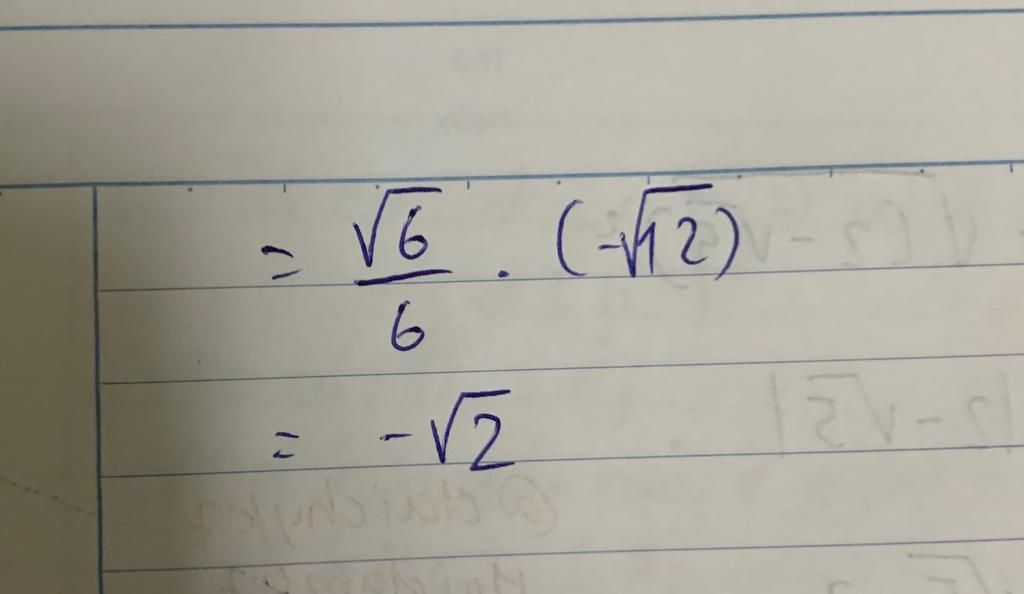 = √6/6 . (-√12)
= -√2